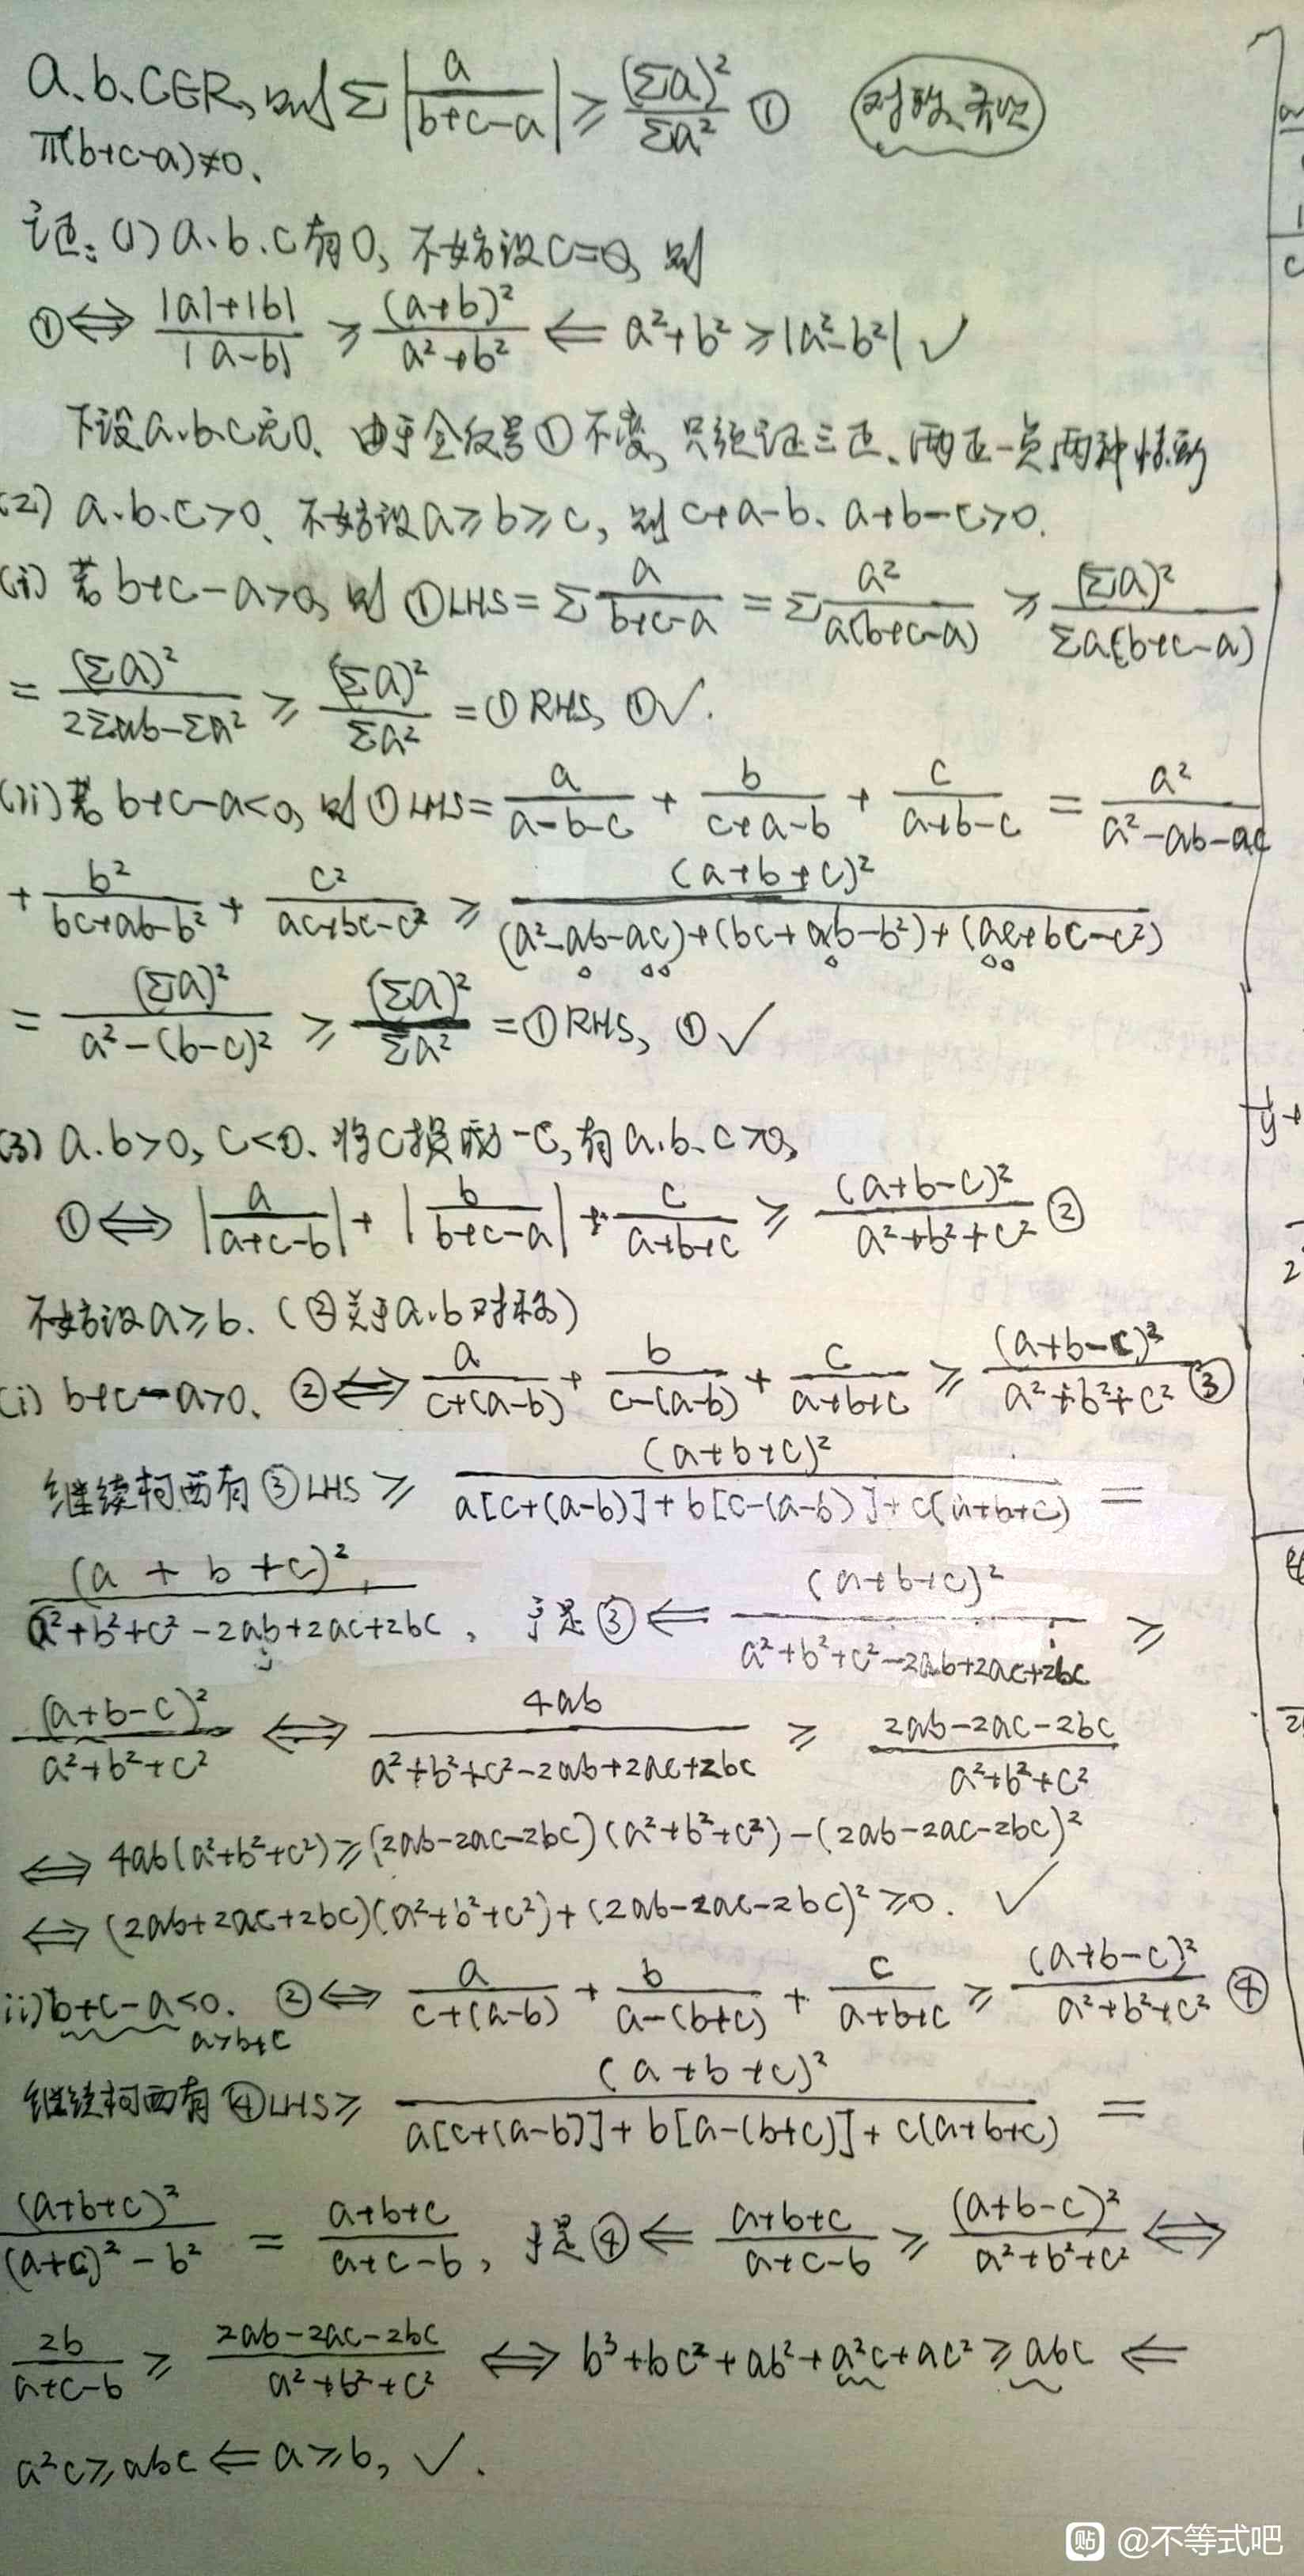 a、b、c∈R, 则 Σ|a/(b+c-a)| ≥ (Σa)²/Σa² ①
π(b+c-a)≠0、
证: (1) a、b、c有0, 不妨设c=0, 则
①⟺ (|a|+|b|)/|a-b| ≥ (a+b)²/(a²+b²) ⟸ a²+b² ≥ |a²-b²| ✓
下设a、b、c无0、由于全反号①不变, 只须证三正、两正一负两种情形
(2) a、b、c>0、不妨设a≥b≥c, 则c+a-b、a+b-c>0.
(i) 若b+c-a>0, 则①LHS = Σ a/(b+c-a) = Σ a²/(a(b+c-a)) ≥ (Σa)²/(Σa(b+c-a))
= (Σa)²/(2Σab-Σa²) ≥ (Σa)²/Σa² = ①RHS, ①✓.
(ii) 若b+c-a<0, 则①LHS = a/(a-b-c) + b/(c+a-b) + c/(a+b-c) = a²/(a²-ab-ac)
+ b²/(bc+ab-b²) + c²/(ac+bc-c²) ≥ (a+b+c)²/((a²-ab-ac)+(bc+ab-b²)+(ac+bc-c²))
= (Σa)²/(a²-(b-c)²) ≥ (Σa)²/Σa² = ①RHS, ①✓
(3) a、b>0, c<0、将c换成-c, 有a、b、c>0,
①⟺ |a/(a+c-b)| + |b/(b+c-a)| + c/(a+b+c) ≥ (a+b-c)²/(a²+b²+c²) ②
不妨设a≥b、(②关于a、b对称)
(i) b+c-a>0、②⟺ a/(c+(a-b)) + b/(c-(a-b)) + c/(a+b+c) ≥ (a+b-c)²/(a²+b²+c²) ③
继续柯西有③LHS ≥ (a+b+c)²/(a[c+(a-b)]+b[c-(a-b)]+c(a+b+c)) =
(a+b+c)²/(a²+b²+c²-2ab+2ac+2bc), 于是③⟸ (a+b+c)²/(a²+b²+c²-2ab+2ac+2bc) ≥
(a+b-c)²/(a²+b²+c²) ⟺ 4ab/(a²+b²+c²-2ab+2ac+2bc) ≥ (2ab-2ac-2bc)/(a²+b²+c²)
⟺ 4ab(a²+b²+c²) ≥ (2ab-2ac-2bc)(a²+b²+c²)-(2ab-2ac-2bc)²
⟺ (2ab+2ac+2bc)(a²+b²+c²)+(2ab-2ac-2bc)² ≥0. ✓
ii) b+c-a<0、②⟺ a/(c+(a-b)) + b/(a-(b+c)) + c/(a+b+c) ≥ (a+b-c)²/(a²+b²+c²) ④
a>b+c
继续柯西有④LHS ≥ (a+b+c)²/(a[c+(a-b)]+b[a-(b+c)]+c(a+b+c)) =
(a+b+c)²/((a+c)²-b²) = (a+b+c)/(a+c-b), 于是④⟸ (a+b+c)/(a+c-b) ≥ (a+b-c)²/(a²+b²+c²) ⟺
2b/(a+c-b) ≥ (2ab-2ac-2bc)/(a²+b²+c²) ⟺ b³+bc²+ab²+a²c+ac² ≥ abc ⟸
a²c≥abc ⟸ a≥b, ✓.
贴 @不等式吧